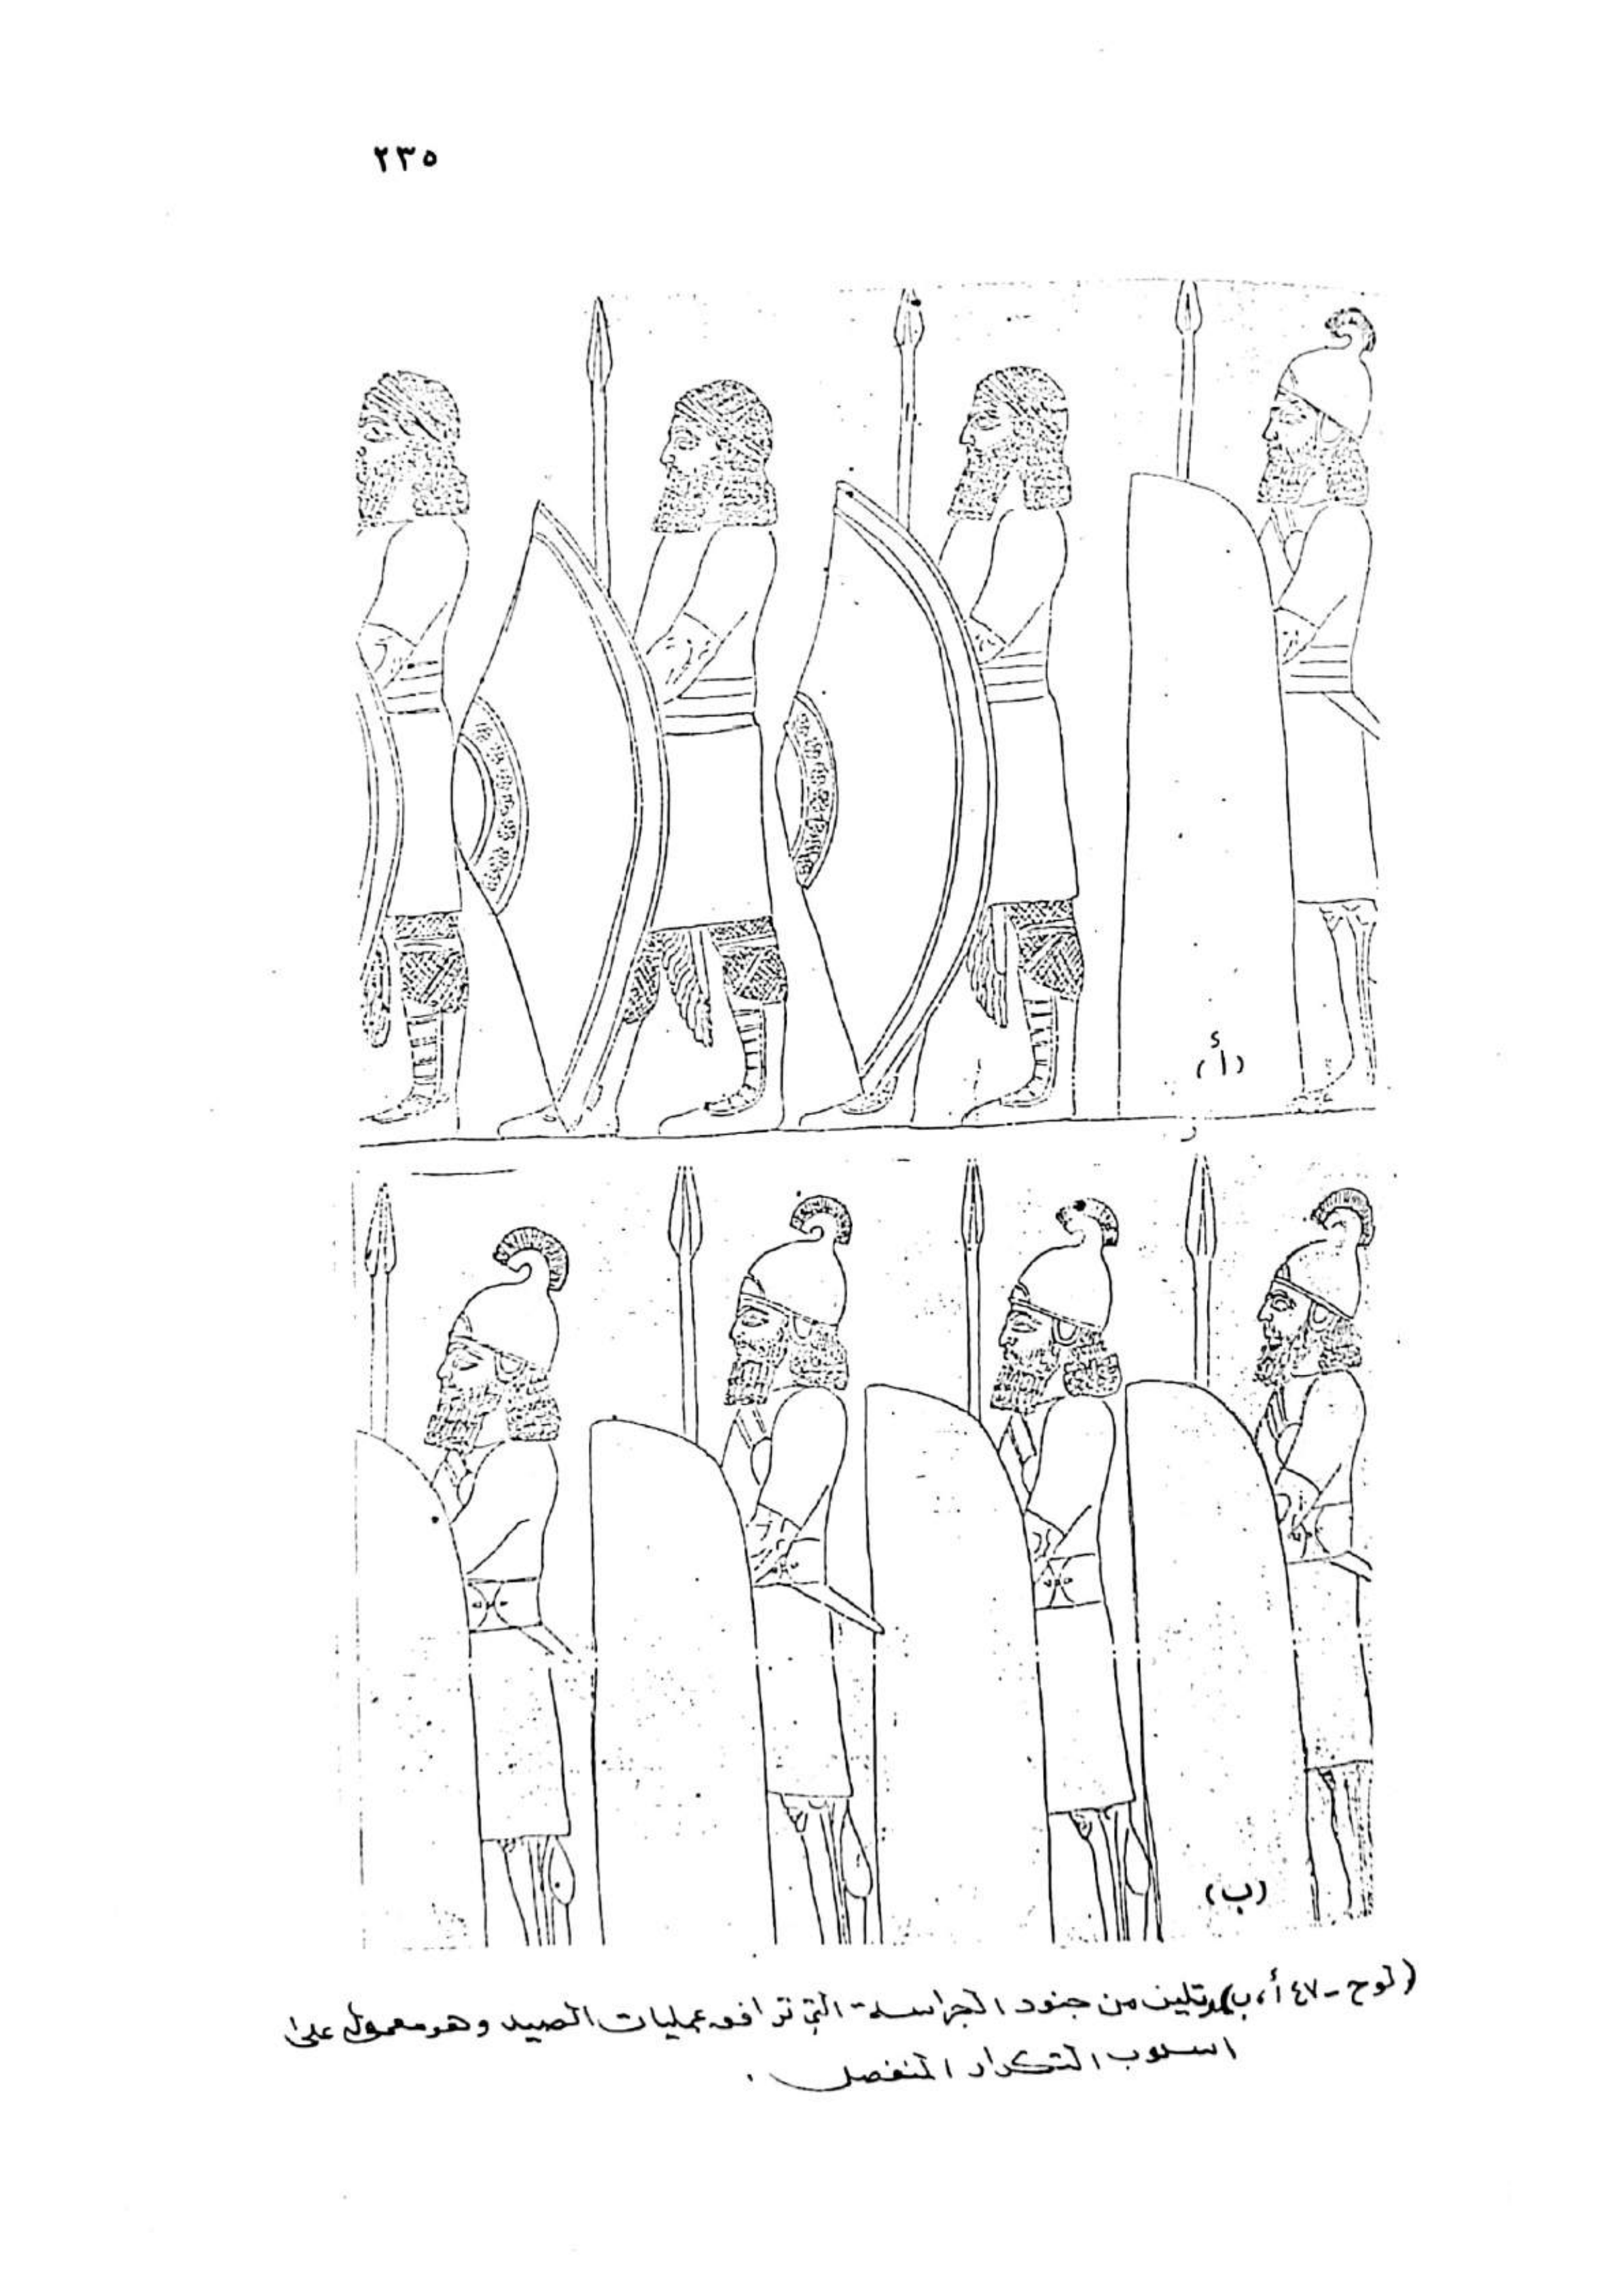 ٢٣٥
(أ)
(ب)
(لوح - ٤٧ أ، ب) رتلين من جنود الحراسة التي ترافق عمليات الصيد وهو معمول على
اسلوب التكرار المنفصل .